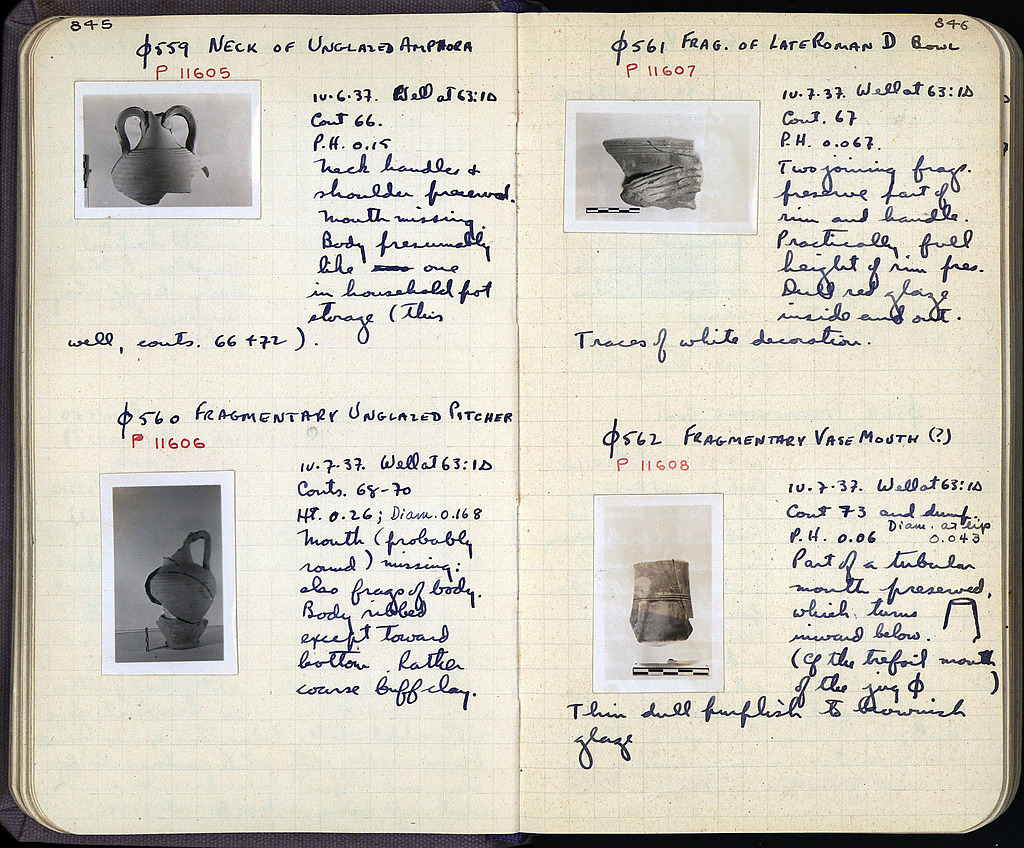 845
φ559 NECK OF UNGLAZED AMPHORA
P 11605
IV.6.37. Well at 63:ΙΔ
Cont 66.
P.H. 0.15
Neck handles +
shoulder preserved.
Mouth missing.
Body presumably
like one
in household pot
storage (this
well, conts. 66 + 72).
φ560 FRAGMENTARY UNGLAZED PITCHER
P 11606
IV.7.37. Well at 63:ΙΔ
Conts. 68-70
HT. 0.26; Diam. 0.168
Mouth (probably
round) missing:
also frags of body.
Body ribbed
except toward
bottom. Rather
coarse buff clay.
846
φ561 FRAG. OF LATE ROMAN D BOWL
P 11607
IV.7.37. Well at 63:ΙΔ
Cont. 67
P.H. 0.067.
Two joining frags.
preserve part of
rim and handle.
Practically full
height of rim pres.
Dull red glaze
inside and out.
Traces of white decoration.
φ562 FRAGMENTARY VASE MOUTH (?)
P 11608
IV.7.37. Well at 63:ΙΔ
Cont 73 and dump.
Diam. at lip
P.H. 0.06 0.043
Part of a tubular
mouth preserved,
which turns
inward below.
(Cf the trefoil mouth
of the jug φ )
Thin dull purplish to brownish
glaze